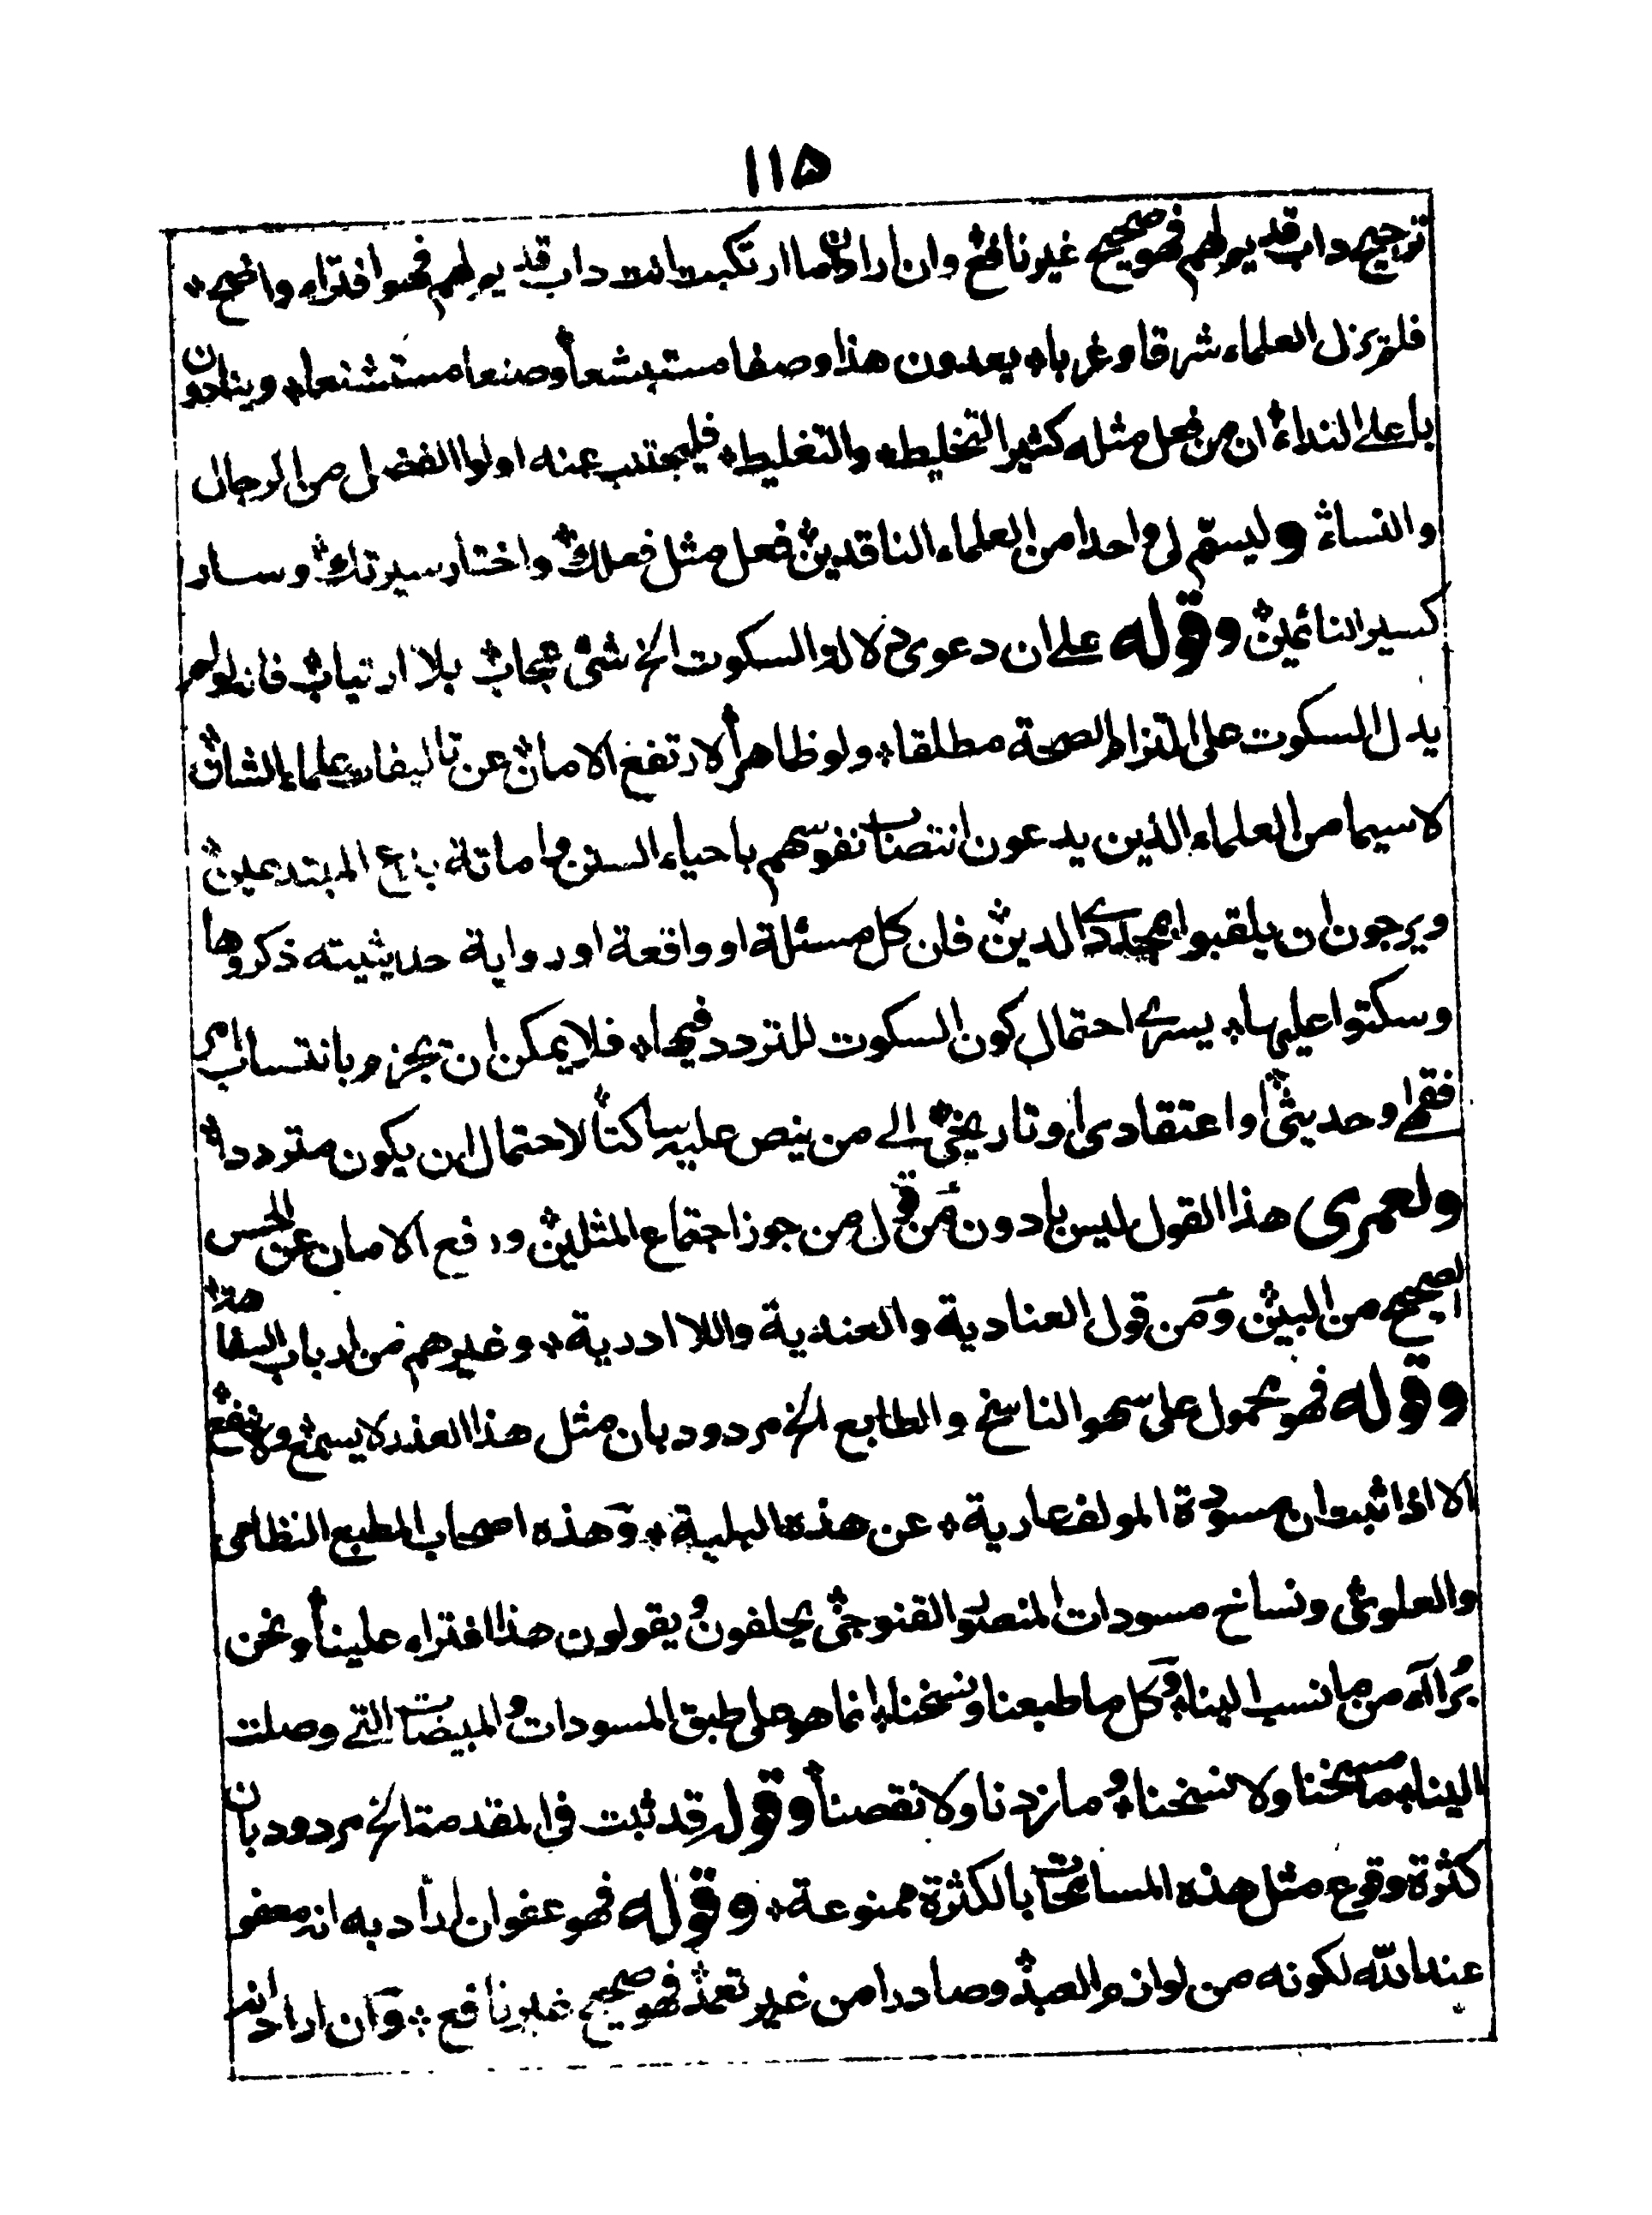 ١١٥
ترجيح داب قديم لهم فهو صحيح غير نافع وان اراد ان ما ارتكبت انت داب قديم لهم فهو افتراء واضح *
فلم يزل العلماء شرقا وغربا * يعدون هذا وصفا مستبشعا * وصنعا مستشنعا * وينادون
باعلى النداء * ان من فعل مثله كثير التخليط * والتغليط * فليجتنب عنه اولوا الفضل من الرجال
والنساء * وليسمّ لى واحدا من العلماء الناقدين * فعل مثل فعلك * واختار سيرتك * وسار
كسير النائمين * وقوله على ان دعوى دلالة السكوت الخ شئ عجاب * بلا ارتياب * فانه لو لم
يدل السكوت على التزام الصحة مطلقا * ولو ظاهرا * لارتفع الامان * عن تاليفات علماء الشان *
لا سيما من العلماء الذين يدعون انتصاب نفوسهم باحياء السنن واماتة بدع المبتدعين *
ويرجون ان يلقبوا بمجددى الدين * فان كل مسئلة او واقعة او رواية حديثيته ذكروها
وسكتوا عليها * يسرى احتمال كون السكوت للتردد فيها * فلا يمكن ان يجزم بانتساب امر
فقهى او حديثى * او اعتقادى او تاريخى * الى من ينص عليه ساكتا * لاحتمال ان يكون مترددا *
ولعمرى هذا القول ليس بادون من قول من جوز اجتماع المثلين * ورفع الامان عن الحس
الصحيح من البين * ومن قول العنادية والعندية واللا ادرية * وغيرهم من ارباب السفاهة *
وقوله فهو محمول على سهو الناسخ والطابع الخ مردود بان مثل هذا العذر لا يسمع * ولا ينفع *
الا اذا ثبت ان مسودة المولف عارية * عن هذه البلية * وهذه اصحاب المطبع النظامى
والعلوى * ونساخ مسودات المنصور القنوجى * يحلفون * ويقولون هذا افتراء علينا * ونحن
برآاء من ما نسب الينا * وكل ما طبعنا ونسخنا * انما هو على طبق المسودات * والمبيضات التى وصلت
الينا * ما مسخنا ولا نسخنا * وما زدنا ولا نقصنا * وقوله قد ثبت فى المقدمة الخ مردود بان
كثرة وقوع مثل هذه المسامحات بالكثرة ممنوعة * وقوله فهو عفو ان اراد به انه معفو
عند الله لكونه من لوازم العبد * وصادرا من غير تعمد * فهو صحيح غير نافع * وان اراد انه